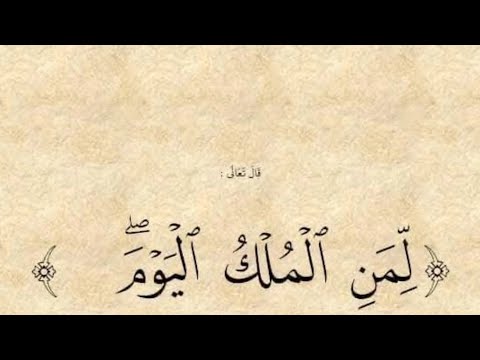 قَالَ تَعَالَى :
﴿ لِّمَنِ ٱلْمُلْكُ ٱلْيَوْمَۖ ﴾